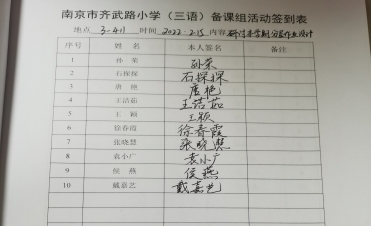 南京市齐武路小学（三语）备课组活动签到表
地点 3-4办 时间 2022-2.15 内容 研讨本学期分层作业设计
序号 姓 名 本人签名 备注
1 孙 荣 孙荣
2 石探探 石探探
3 唐 艳 唐艳
4 王洁茹 王洁茹
5 王 颖 王颖
6 徐春霞 徐春霞
7 张晓慧 张晓慧
8 袁小广 袁小广
9 侯 燕 侯燕
10 戴嘉艺 戴嘉艺